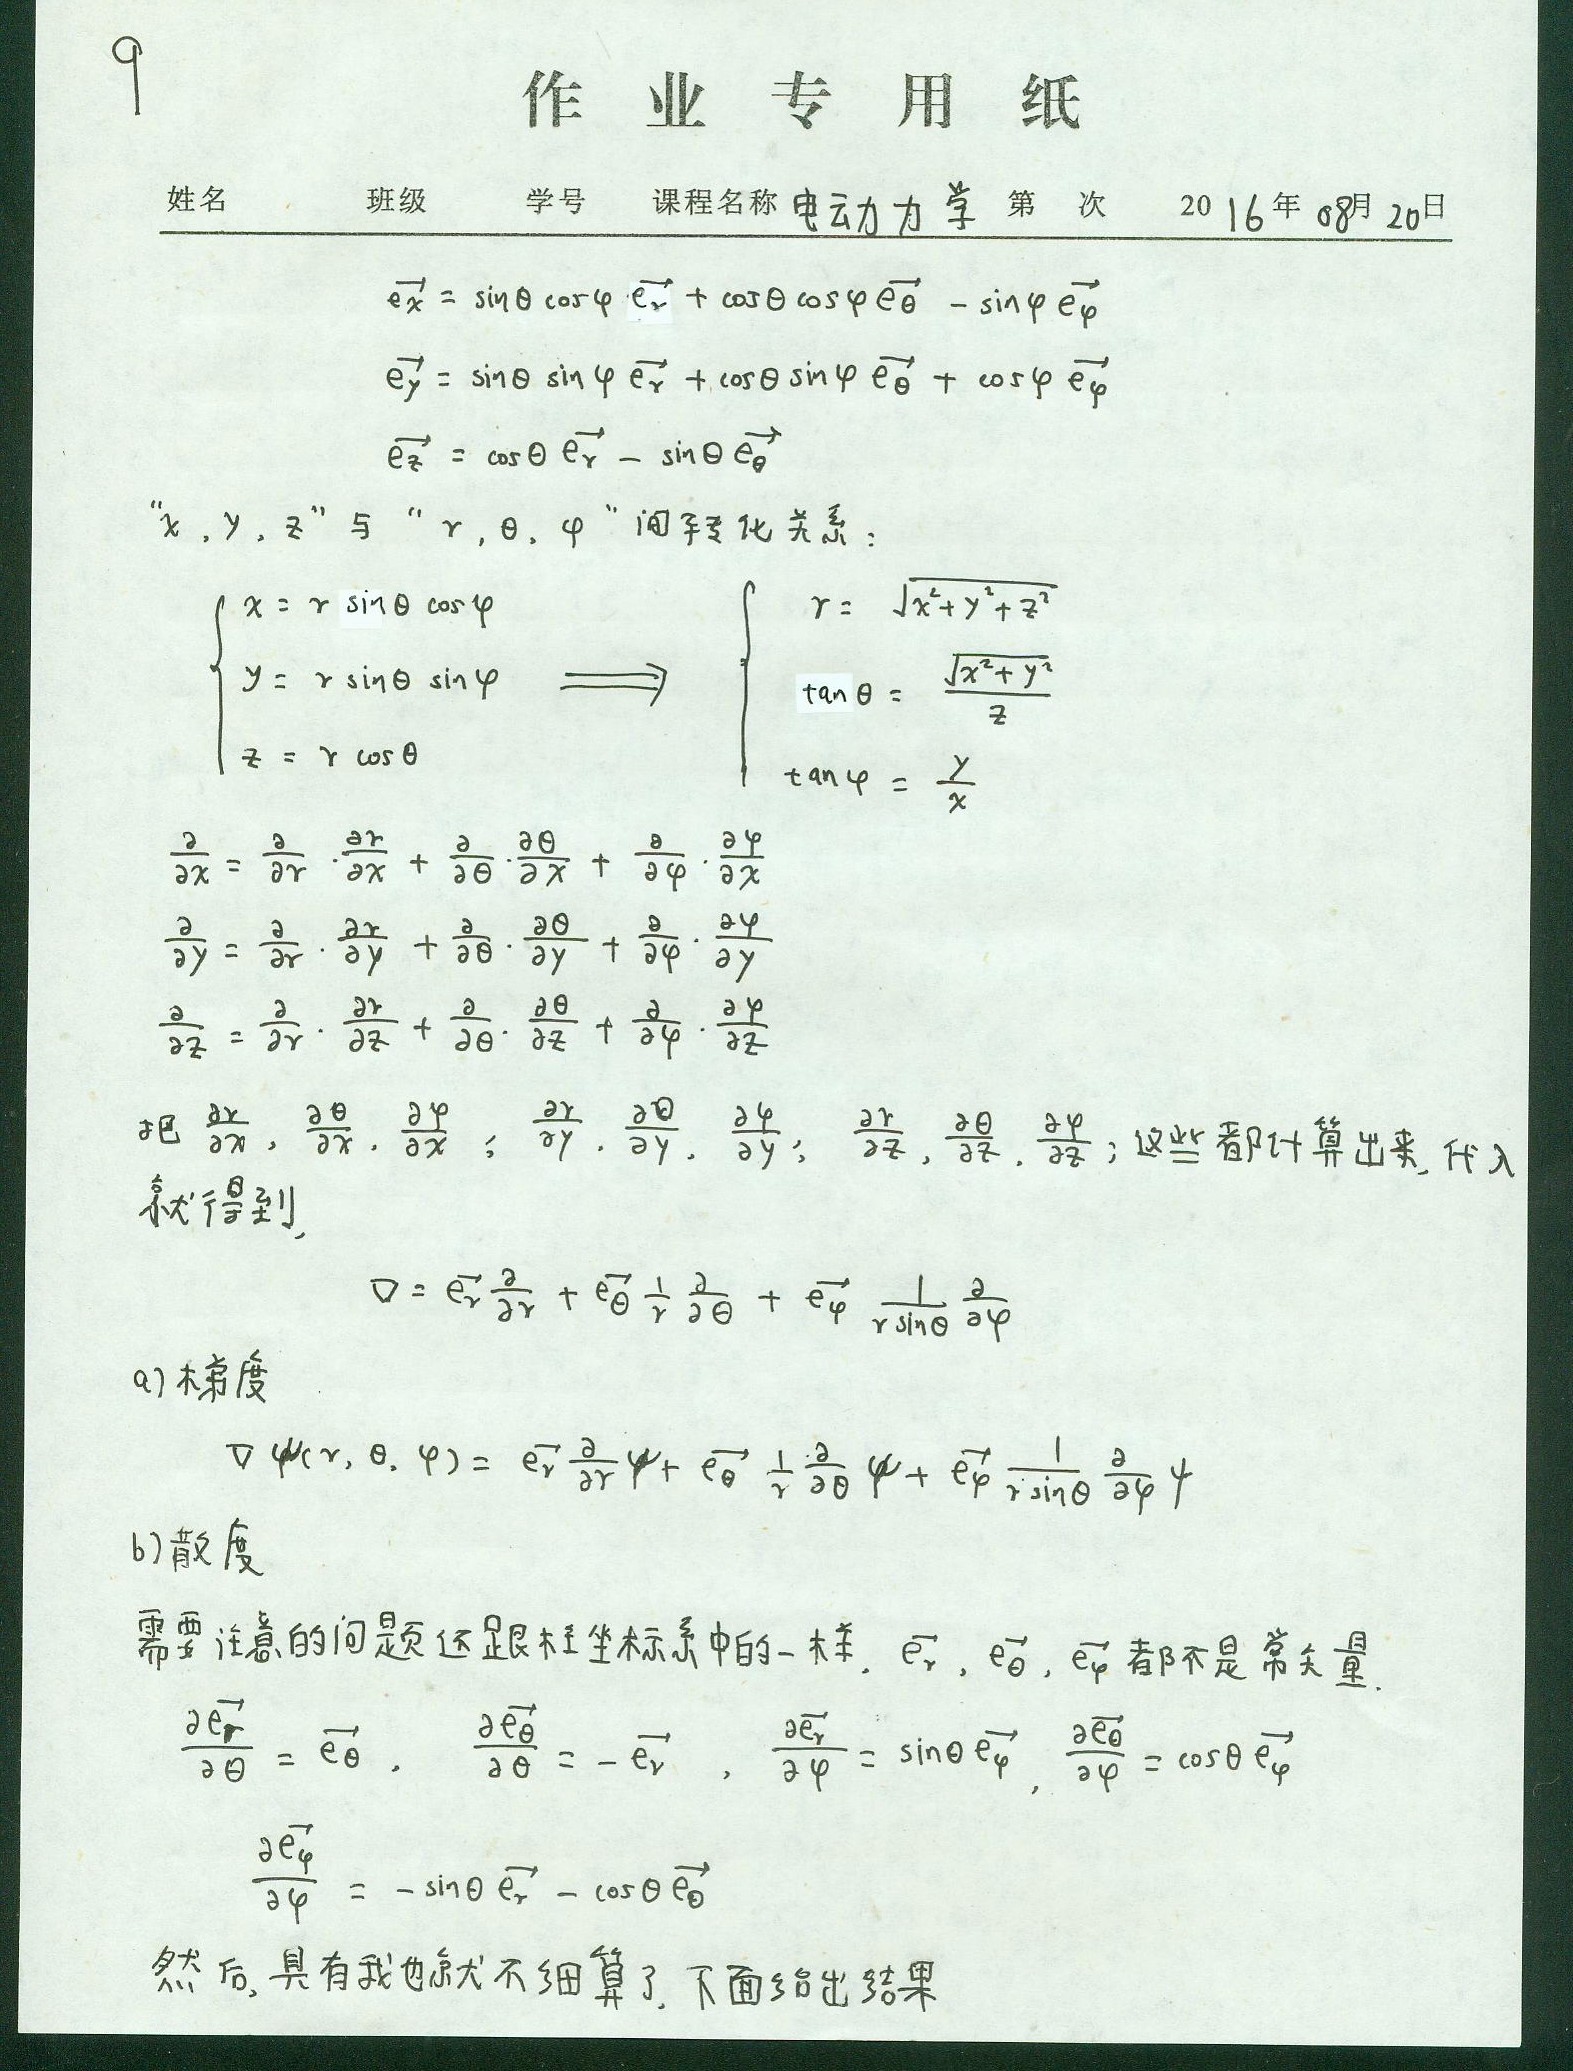 9
作业专用纸
姓名 班级 学号 课程名称 电动力力学 第 次 2016年08月20日
$\vec{e_x} = \sin\theta\cos\varphi\,\vec{e_r} + \cos\theta\cos\varphi\,\vec{e_\theta} - \sin\varphi\,\vec{e_\varphi}$
$\vec{e_y} = \sin\theta\sin\varphi\,\vec{e_r} + \cos\theta\sin\varphi\,\vec{e_\theta} + \cos\varphi\,\vec{e_\varphi}$
$\vec{e_z} = \cos\theta\,\vec{e_r} - \sin\theta\,\vec{e_\theta}$
“x, y, z” 与 “r, θ, φ” 间转化关系:
$\begin{cases} x = r\sin\theta\cos\varphi \\ y = r\sin\theta\sin\varphi \\ z = r\cos\theta \end{cases} \Longrightarrow \begin{cases} r = \sqrt{x^2+y^2+z^2} \\ \tan\theta = \frac{\sqrt{x^2+y^2}}{z} \\ \tan\varphi = \frac{y}{x} \end{cases}$
$\frac{\partial}{\partial x} = \frac{\partial}{\partial r}\cdot\frac{\partial r}{\partial x} + \frac{\partial}{\partial\theta}\cdot\frac{\partial\theta}{\partial x} + \frac{\partial}{\partial\varphi}\cdot\frac{\partial\varphi}{\partial x}$
$\frac{\partial}{\partial y} = \frac{\partial}{\partial r}\cdot\frac{\partial r}{\partial y} + \frac{\partial}{\partial\theta}\cdot\frac{\partial\theta}{\partial y} + \frac{\partial}{\partial\varphi}\cdot\frac{\partial\varphi}{\partial y}$
$\frac{\partial}{\partial z} = \frac{\partial}{\partial r}\cdot\frac{\partial r}{\partial z} + \frac{\partial}{\partial\theta}\cdot\frac{\partial\theta}{\partial z} + \frac{\partial}{\partial\varphi}\cdot\frac{\partial\varphi}{\partial z}$
把 $\frac{\partial r}{\partial x}, \frac{\partial\theta}{\partial x}, \frac{\partial\varphi}{\partial x}; \frac{\partial r}{\partial y}, \frac{\partial\theta}{\partial y}, \frac{\partial\varphi}{\partial y}; \frac{\partial r}{\partial z}, \frac{\partial\theta}{\partial z}, \frac{\partial\varphi}{\partial z}$; 这些都计算出来, 代入
就得到,
$\nabla = \vec{e_r}\frac{\partial}{\partial r} + \vec{e_\theta}\frac{1}{r}\frac{\partial}{\partial\theta} + \vec{e_\varphi}\frac{1}{r\sin\theta}\frac{\partial}{\partial\varphi}$
a) 梯度
$\nabla\psi(r,\theta,\varphi) = \vec{e_r}\frac{\partial}{\partial r}\psi + \vec{e_\theta}\frac{1}{r}\frac{\partial}{\partial\theta}\psi + \vec{e_\varphi}\frac{1}{r\sin\theta}\frac{\partial}{\partial\varphi}\psi$
b) 散度
需要注意的问题还跟柱坐标系中的一样, $\vec{e_r}, \vec{e_\theta}, \vec{e_\varphi}$ 都不是常矢量.
$\frac{\partial\vec{e_r}}{\partial\theta} = \vec{e_\theta}, \frac{\partial\vec{e_\theta}}{\partial\theta} = -\vec{e_r}, \frac{\partial\vec{e_r}}{\partial\varphi} = \sin\theta\,\vec{e_\varphi}, \frac{\partial\vec{e_\theta}}{\partial\varphi} = \cos\theta\,\vec{e_\varphi}$
$\frac{\partial\vec{e_\varphi}}{\partial\varphi} = -\sin\theta\,\vec{e_r} - \cos\theta\,\vec{e_\theta}$
然后, 具有我也就不细算了, 下面给出结果